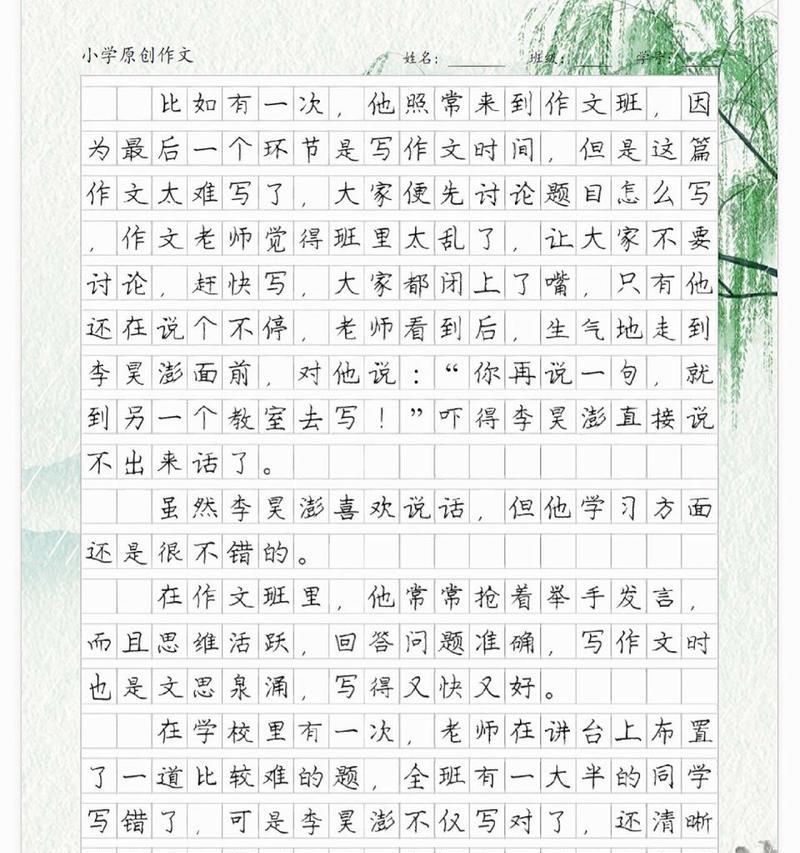 小学原创作文 姓名： 班级： 学号：
比如有一次，他照常来到作文班，因
为最后一个环节是写作文时间，但是这篇
作文太难写了，大家便先讨论题目怎么写
，作文老师觉得班里太乱了，让大家不要
讨论，赶快写，大家都闭上了嘴，只有他
还在说个不停，老师看到后，生气地走到
李昊澎面前，对他说：“你再说一句，就
到另一个教室去写！”吓得李昊澎直接说
不出来话了。
虽然李昊澎喜欢说话，但他学习方面
还是很不错的。
在作文班里，他常常抢着举手发言，
而且思维活跃，回答问题准确，写作文时
也是文思泉涌，写得又快又好。
在学校里有一次，老师在讲台上布置
了一道比较难的题，全班有一大半的同学
写错了，可是李昊澎不仅写对了，还清晰